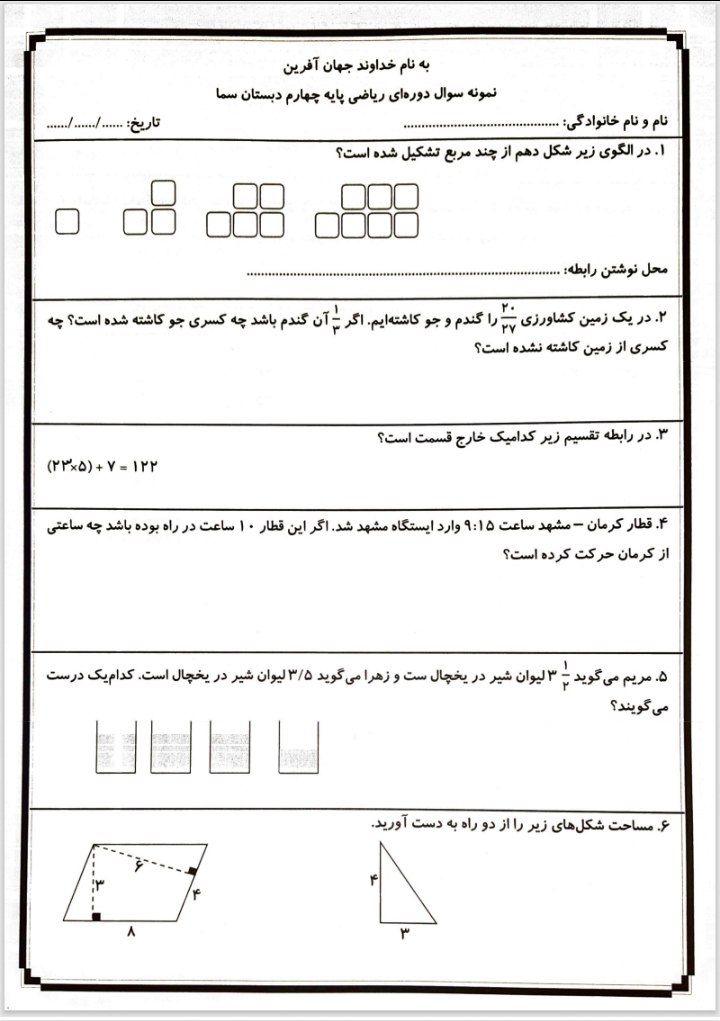 به نام خداوند جهان آفرین
نمونه سوال دوره‌ای ریاضی پایه چهارم دبستان سما
نام و نام خانوادگی: ........................................ تاریخ: ....../....../......
۱. در الگوی زیر شکل دهم از چند مربع تشکیل شده است؟
محل نوشتن رابطه: ................................................................................
۲. در یک زمین کشاورزی ۲۰/۲۷ را گندم و جو کاشته‌ایم. اگر ۱/۳ آن گندم باشد چه کسری جو کاشته شده است؟ چه
کسری از زمین کاشته نشده است؟
۳. در رابطه تقسیم زیر کدامیک خارج قسمت است؟
(۲۳×۵) + ۷ = ۱۲۲
۴. قطار کرمان – مشهد ساعت ۹:۱۵ وارد ایستگاه مشهد شد. اگر این قطار ۱۰ ساعت در راه بوده باشد چه ساعتی
از کرمان حرکت کرده است؟
۵. مریم می‌گوید ۳ ۱/۲ لیوان شیر در یخچال ست و زهرا می‌گوید ۳/۵ لیوان شیر در یخچال است. کدام‌یک درست
می‌گویند؟
۶. مساحت شکل‌های زیر را از دو راه به دست آورید.
۴
۳
۶
۳
۴
۸